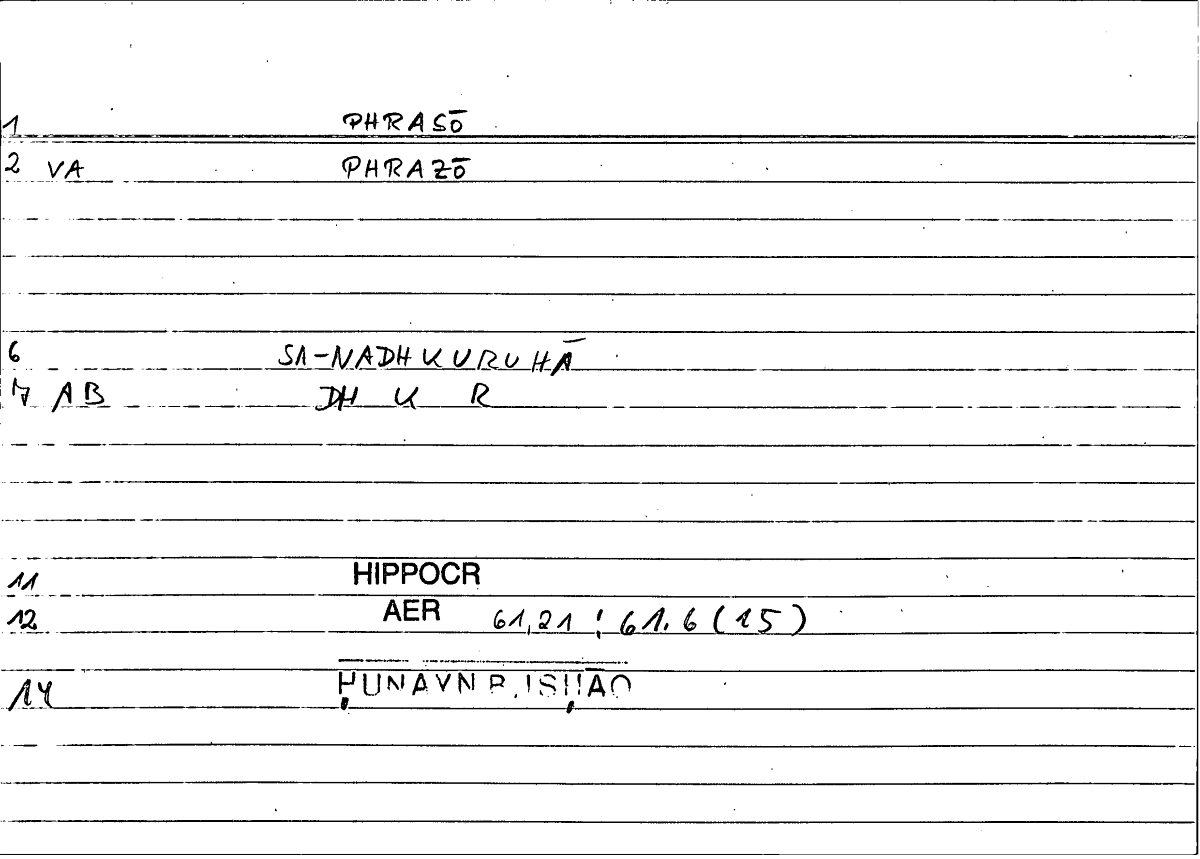 1 PHRASŌ
2 VA PHRAZŌ
6 SA-NADHKURUHĀ
7 AB DH K R
11 HIPPOCR
12 AER 61,21 ; 61.6 (15)
14